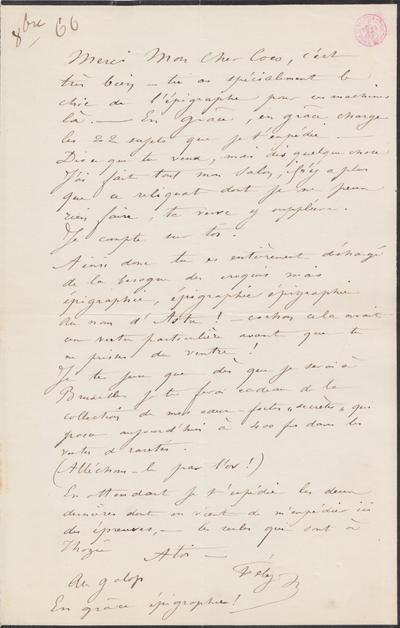 8bre 66
Merci Mon Cher Coco, c'est
très bien — tu as spécialement le
chic de l'épigraphe pour ces machines
là. — En grâce, en grâce, charge
les 22 sujets que je t'expédie —
Dis ce que tu veux, mais dis quelque chose
J'ai fait tout mon Salon, il n'y a plus
que ce reliquat dont je ne peux
rien faire, ta verve y suppléera.
Je compte sur toi.
Ainsi donc tu es entièrement déchargé
de la besogne des croquis mais
épigraphie, épigraphie épigraphie
au nom d' — cochon cela avait
une vertu particulière avant que tu
ne prisses du ventre !
Je te jure que dès que je serai à
Bruxelles je te ferai cadeau de la
collection de mes eaux-fortes « secrètes » qui
aujourd'hui à 400 frs dans les
ventes de raretés.
(Alléchons-le par l'or !)
En attendant je t'expédie les deux
dernières dont on vient de m'expédier ici
des épreuves, — les seules qui sont à
Thozée
A toi —
Fély R
Au galop
En grâce épigraphie !